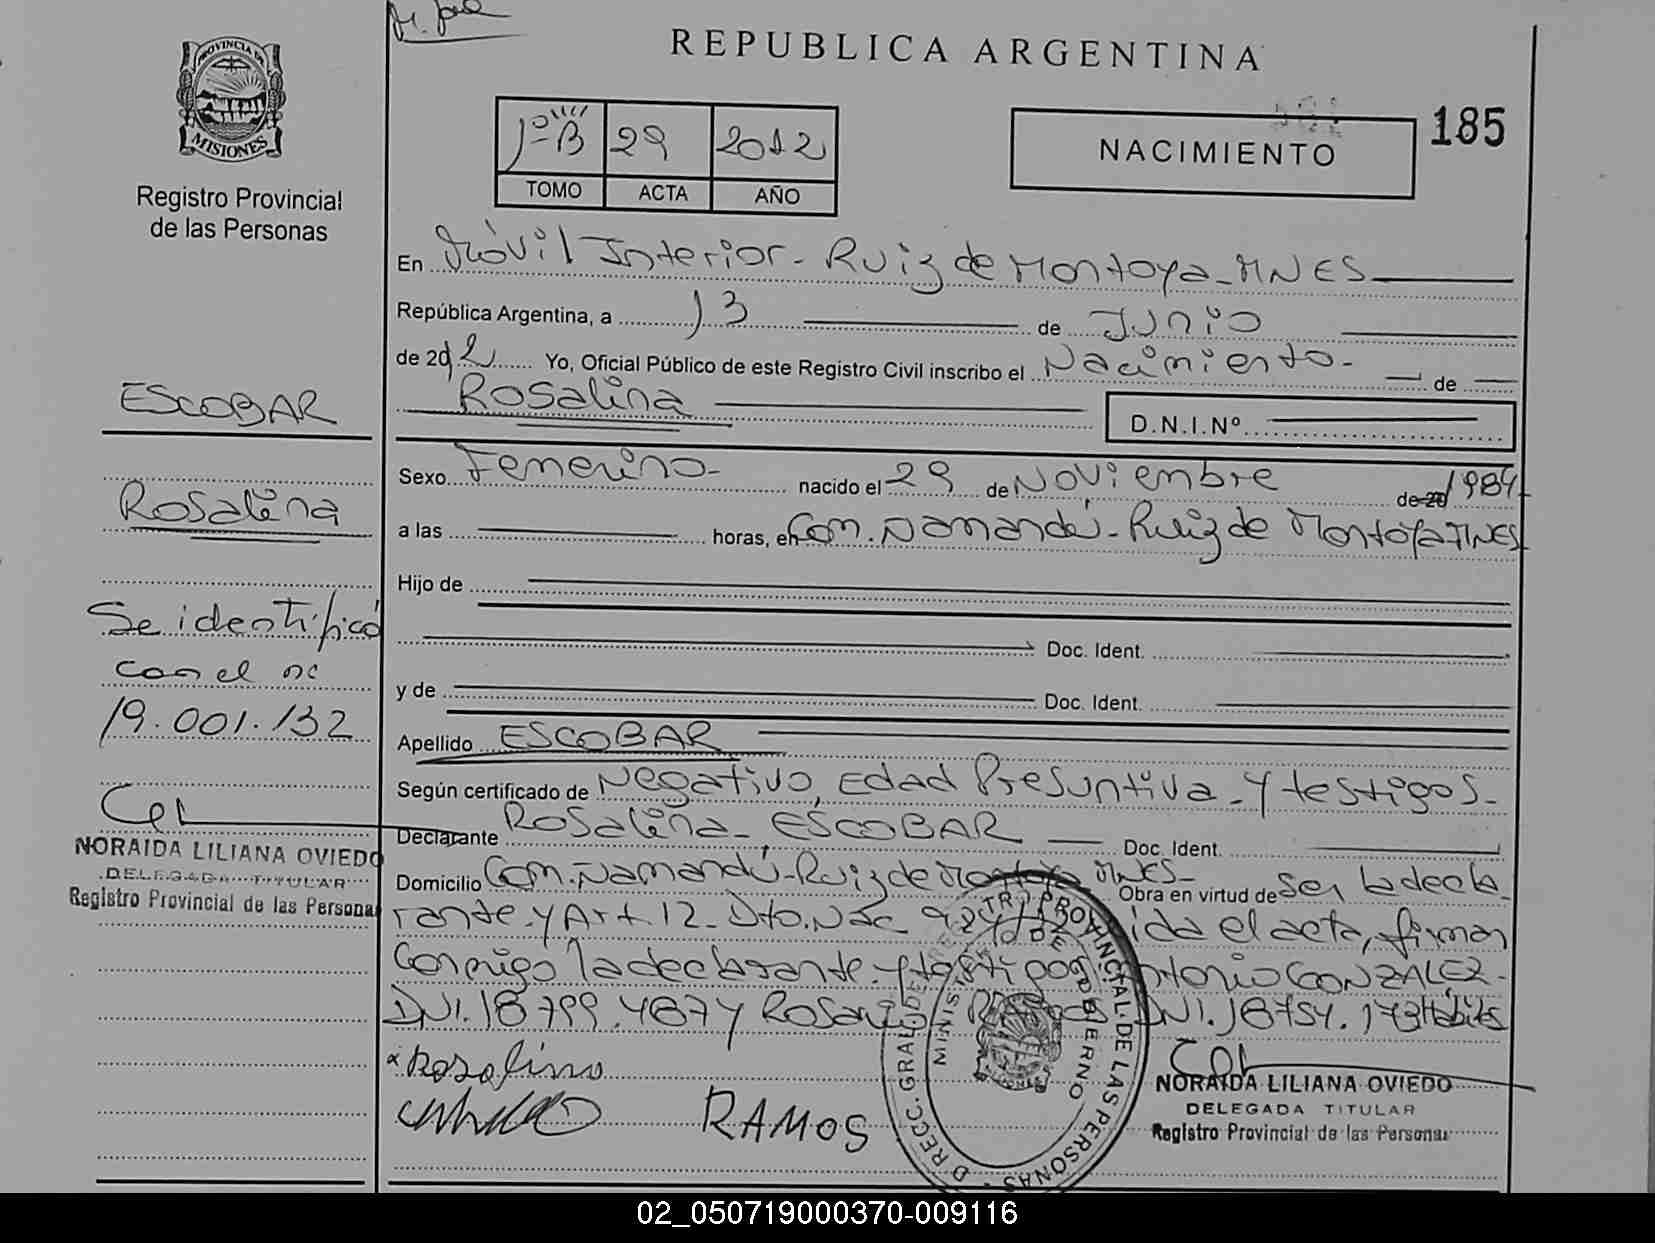 REPUBLICA ARGENTINA
PROVINCIA DE
MISIONES
Registro Provincial
de las Personas
1º B 29 2012
TOMO ACTA AÑO
NACIMIENTO
185
En Móvil Interior - Ruiz de Montoya - MNES
República Argentina, a 13 de Junio
de 2012 Yo, Oficial Público de este Registro Civil inscribo el Nacimiento - de
Rosalina D.N.I.Nº
Sexo Femenino - nacido el 29 de Noviembre de 20 1984
a las horas, en Com. Ñamandú - Ruiz de Montoya MNES
Hijo de
Doc. Ident.
y de Doc. Ident.
Apellido ESCOBAR
Según certificado de Negativo, Edad Presuntiva - y testigos -
Declarante Rosalina - ESCOBAR Doc. Ident.
Domicilio Com. Ñamandú - Ruiz de Montoya MNES - Obra en virtud de Ser la decla
rante y Art. 12 - Dto. Nac ida el acta, firman
Conmigo la declarante y testigos Antonio GONZALEZ -
DNI. 18.799.487 y Rosario Ramos DNI. 18.754.173 Hábiles
x Rosalina
RAMOS
NORAIDA LILIANA OVIEDO
DELEGADA TITULAR
Registro Provincial de las Personas
ESCOBAR
Rosalina
Se identificó
con el nº
19.001.132
NORAIDA LILIANA OVIEDO
DELEGADA TITULAR
Registro Provincial de las Personas
02_050719000370-009116